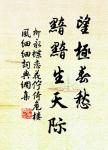 望極春愁
黯黯生天际
柳永蝶恋花伫倚危楼
風细细詞典網集